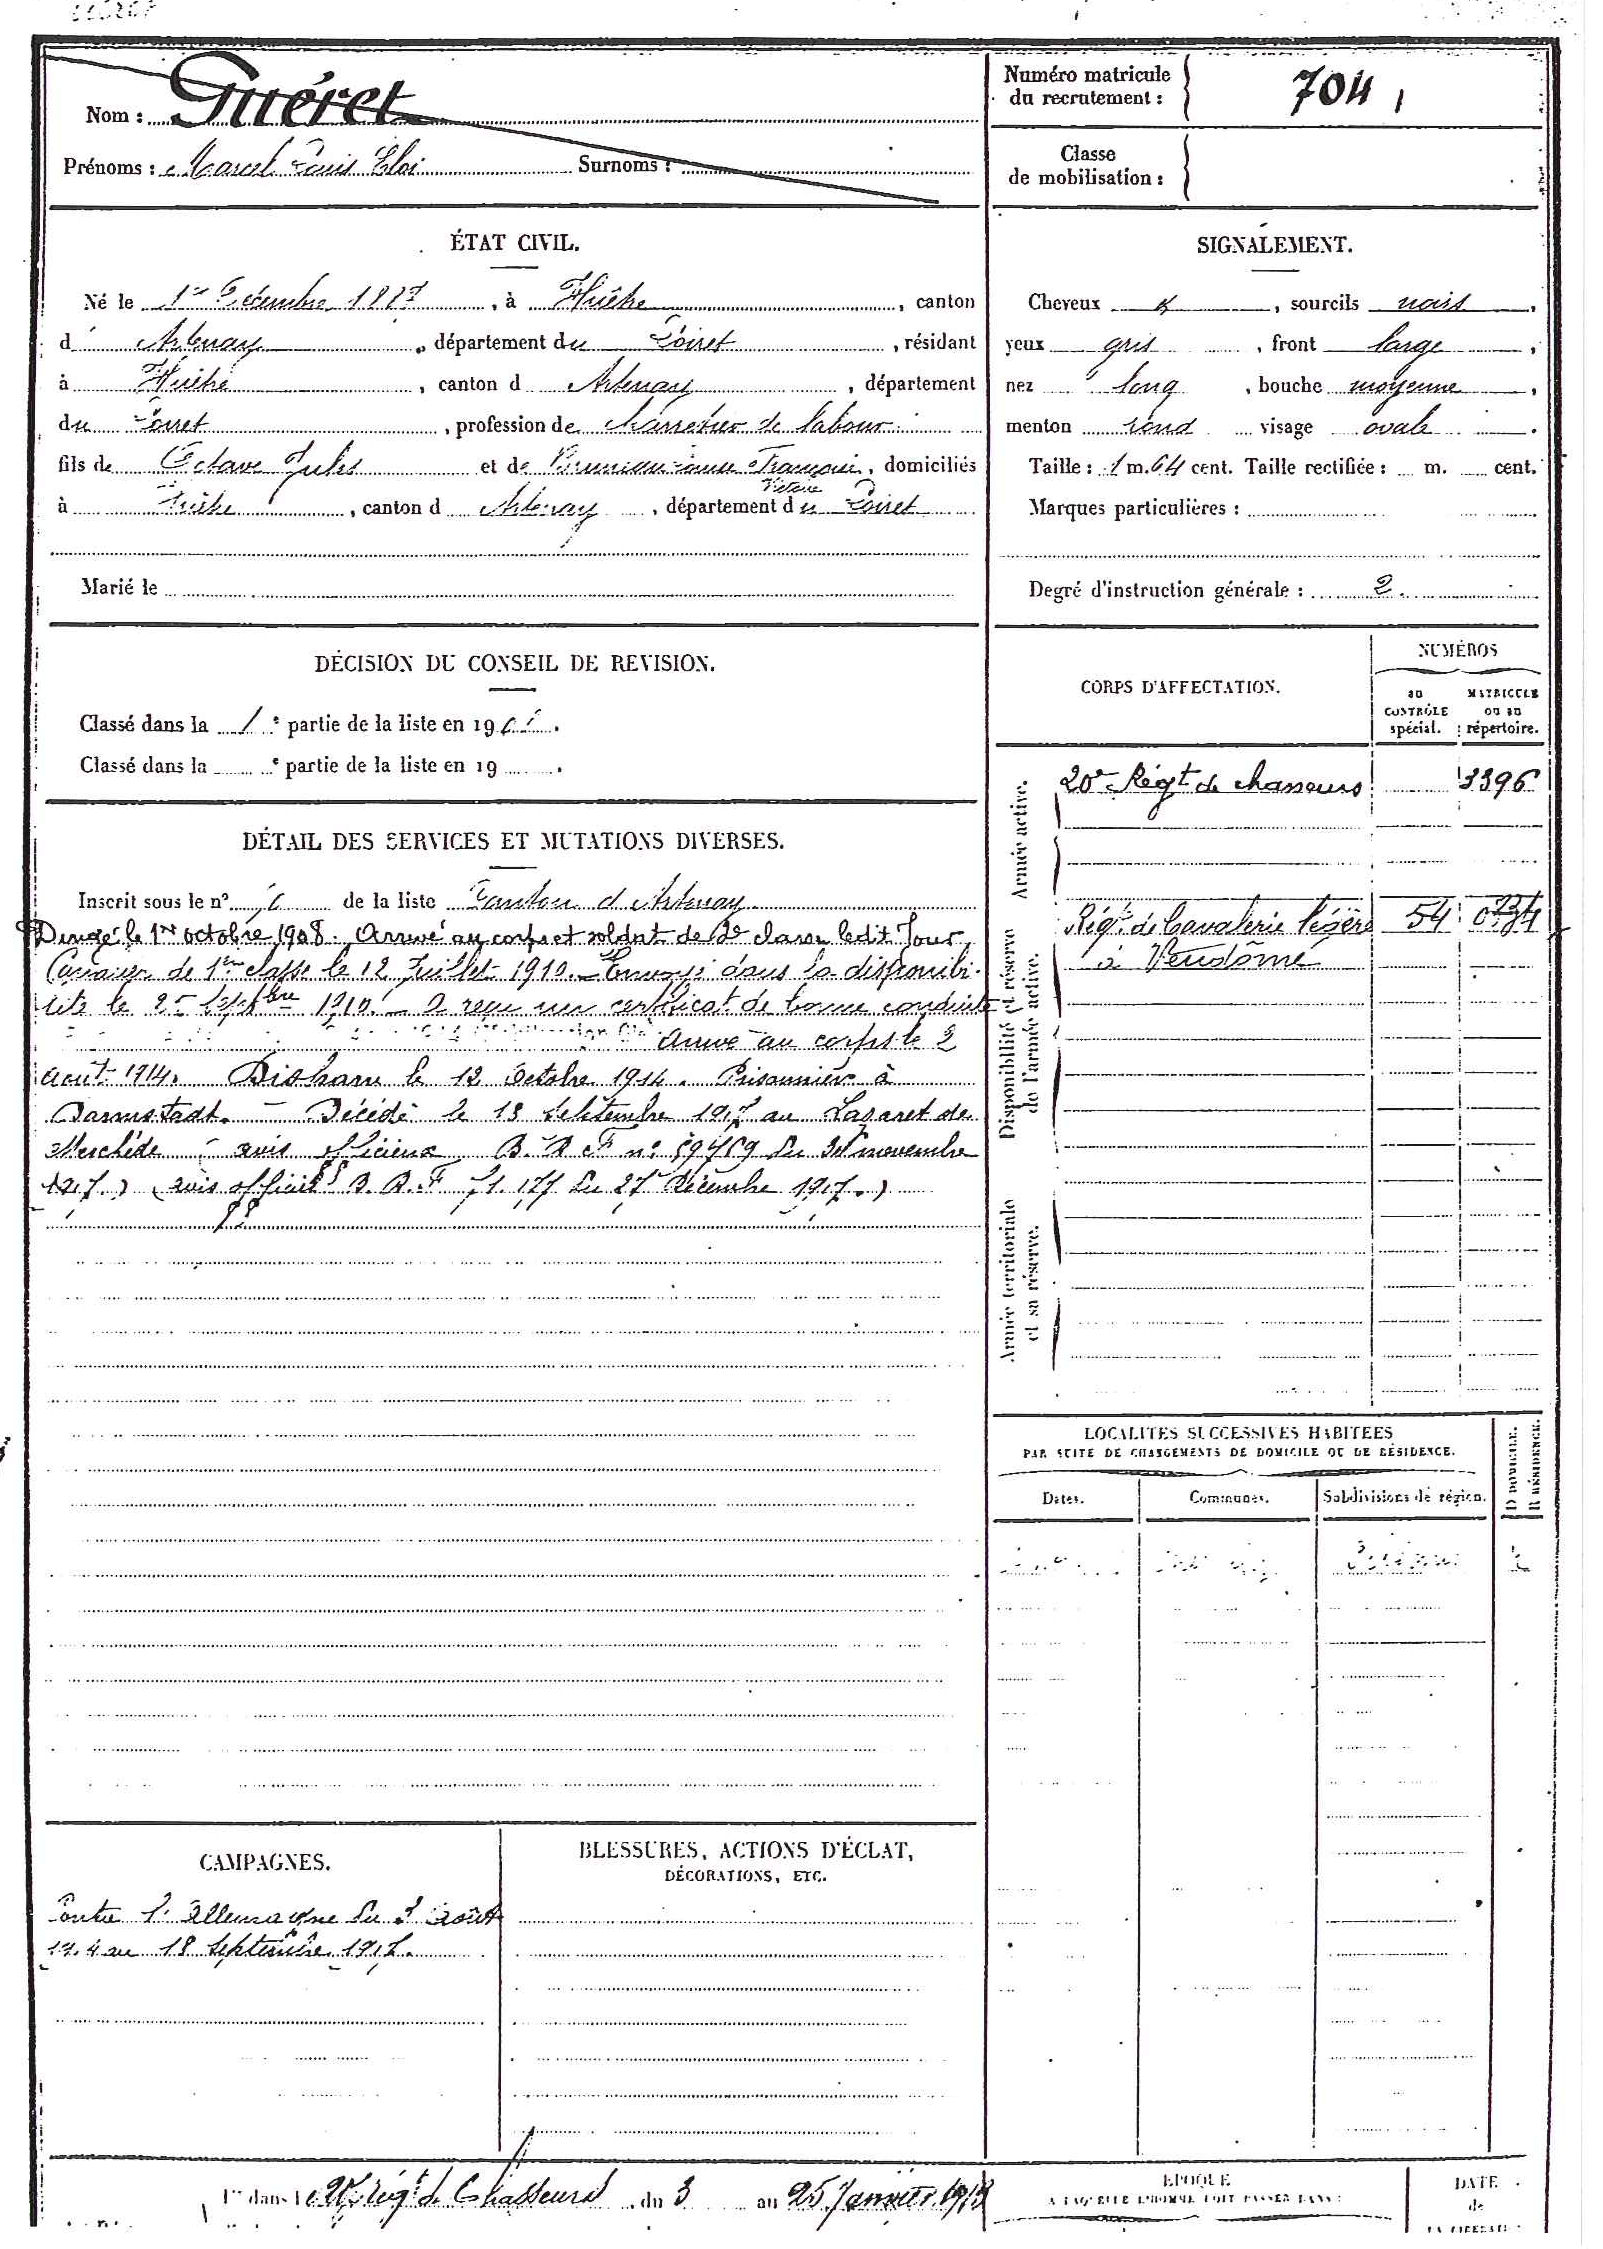 Nom : Guéret
Prénoms : Marcel Louis Eloi Surnoms :
Numéro matricule
du recrutement : 704
Classe
de mobilisation :
ÉTAT CIVIL.
Né le 1er Décembre 1887, à Huêtre, canton
d' Artenay, département du Loiret, résidant
à Huêtre, canton d Artenay, département
du Loiret, profession de charretier de labour
fils de Octave Jules et de Françoise, domiciliés
Victoire
à Huêtre, canton d Artenay, département du Loiret
Marié le
SIGNALEMENT.
Cheveux, sourcils noirs,
yeux gris, front large,
nez long, bouche moyenne,
menton rond visage ovale.
Taille : 1 m. 64 cent. Taille rectifiée : m. cent.
Marques particulières :
Degré d'instruction générale : 2.
DÉCISION DU CONSEIL DE REVISION.
Classé dans la 1e partie de la liste en 190.
Classé dans la e partie de la liste en 19 .
DÉTAIL DES SERVICES ET MUTATIONS DIVERSES.
Inscrit sous le n° de la liste Canton d'Artenay
Dirigé le 1er octobre 1908. Arrivé au corps et soldat de 2e classe ledit Jour
Cavalier de 1ère classe le 12 Juillet 1910. Envoyé dans la disponibi-
lité le 25 Septbre 1910. A reçu un certificat de bonne conduite
arrivé au corps le 2
août 1914. Disparu le 12 Octobre 1914. Prisonnier à
Darmstadt. Décédé le 18 Septembre 1917 au Lazaret de
Meschède avis officieux B. R. F n° 59759 du novembre
1917) (avis officiel B. R. F 71.177 du 27 Décembre 1917.)
CORPS D'AFFECTATION.
NUMÉROS
au
CONTRÔLE
spécial.
MATRICULE
ou au
répertoire.
Armée active.
20e Régt de chasseurs 3396
Disponibilité et réserve
de l'armée active.
Régt de Cavalerie légère 54
à Vendôme
Armée territoriale
et sa réserve.
LOCALITÉS SUCCESSIVES HABITÉES
PAR SUITE DE CHANGEMENTS DE DOMICILE OU DE RÉSIDENCE.
Dates. Communes. Subdivisions de région.
D DOMICILE.
R RÉSIDENCE.
CAMPAGNES.
Contre l'Allemagne du 2 Août
1914 au 18 Septembre 1917.
BLESSURES, ACTIONS D'ÉCLAT,
DÉCORATIONS, ETC.
1re dans le 20e régt de Chasseurs du 3 au 25 Janvier 1913
ÉPOQUE
À LAQUELLE L'HOMME DOIT PASSER DANS :
DATE
de
LA LIBÉRATI